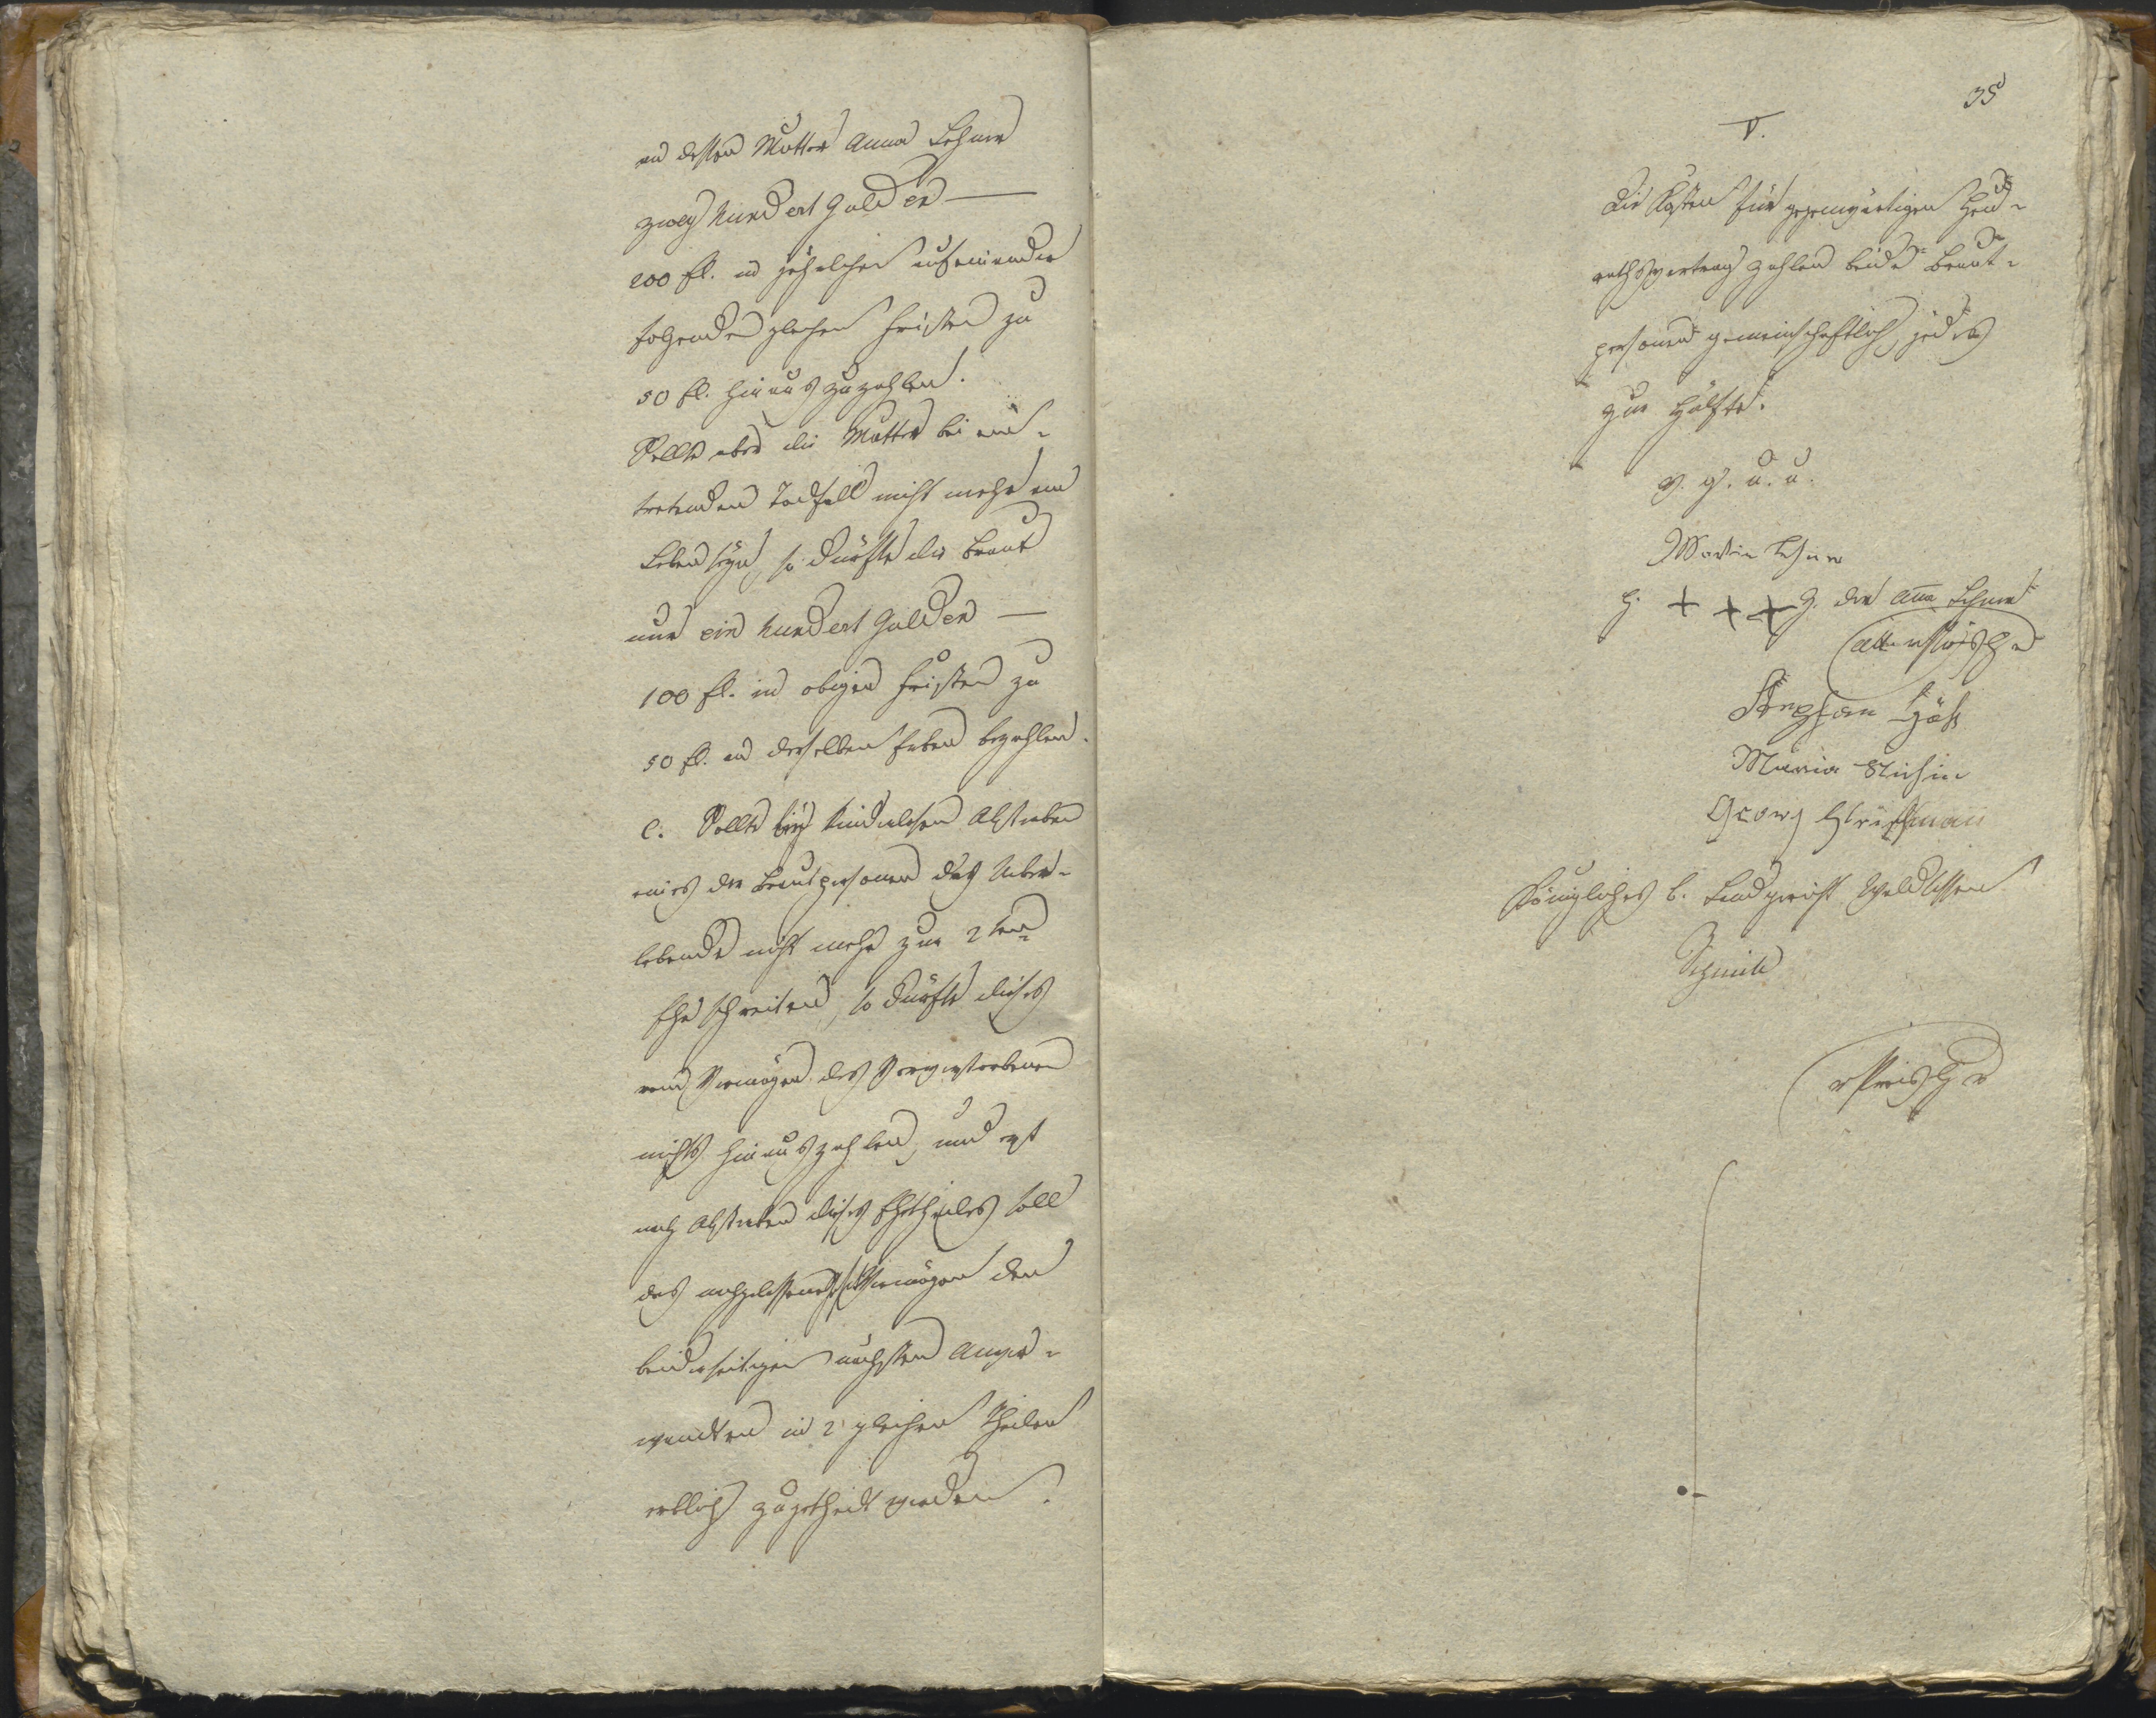 an dessen Mutter Anna Lehner
zwey hundert Gulden —
200 fl. in jährlichen aufeinander
folgenden gleichen Fristen zu
50 fl. hinauszuzahlen.
Sollte aber die Mutter bei ein-
tretenden Todfall nicht mehr am
Leben seyn, so dürfte die Braut
nur ein hundert Gulden —
100 fl. in obigen Fristen zu
50 fl. an derselben Erben bezahlen.
c. Sollte bey kinderlosen Absterben
eines der Brautpersonen das Ueber-
lebende nicht mehr zur 2ten
Ehe schreiten, so dürfte dieses
vom Vermögen des Vorverstorbenen
nichts hinauszahlen, und erst
nach Absterben dieses Ehetheiles soll
das nachgelassene Vermögen den
beiderseitigen nächsten Anver-
wandten in 2 gleichen Theilen
erblich zugetheilt werden.
35
V.
Die Kosten für gegenwärtigen Heu-
rathsvertrag zahlen beide Braut-
personen gemeinschaftlich, jedes
zur Hälfte.
v. g. u. u.
Martin Lehner
H. + + + Z. der Anna Lehner
Stephan
Maria
Georg
Königliches b. Landgericht Waldsassen